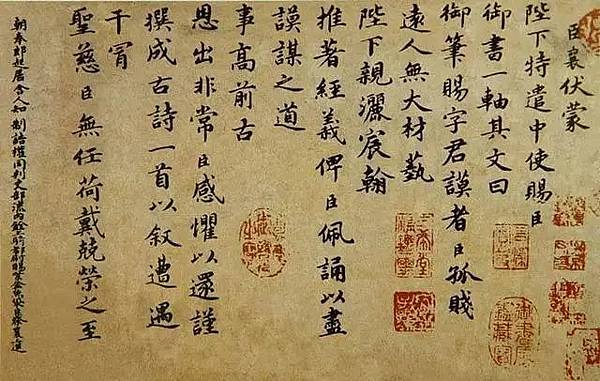 臣襄伏蒙
陛下特遣中使賜臣
御書一軸其文曰
御筆賜字君謨者臣孤賤
遠人無大材藝
陛下親灑宸翰
推著經義俾臣佩誦以盡
謨謀之道
事髙前古
恩出非常臣感懼以還謹
撰成古詩一首以叙遭遇
干冒
聖慈臣無任荷戴兢榮之至
朝奉郎起居舍人知 制誥權同判吏部流內銓上騎都尉賜紫金魚袋臣蔡襄上進